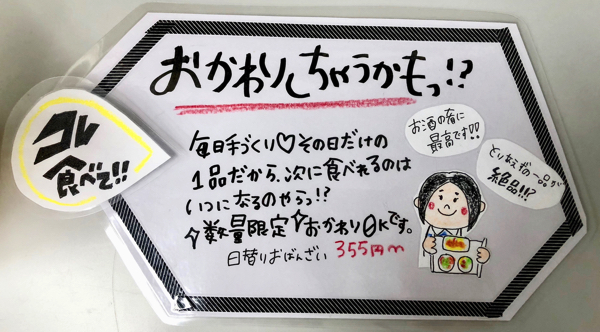 おかわりしちゃうかもっ!?
コレ
食べて!!
お酒の肴に
最高です!!
とりあえずの一品が
絶品!!?
毎日手づくり♡その日だけの
1品だから、次に食べれるのは
いつになるのやらっ!?
数量限定 おかわりOKです。
日替りおばんざい 355円